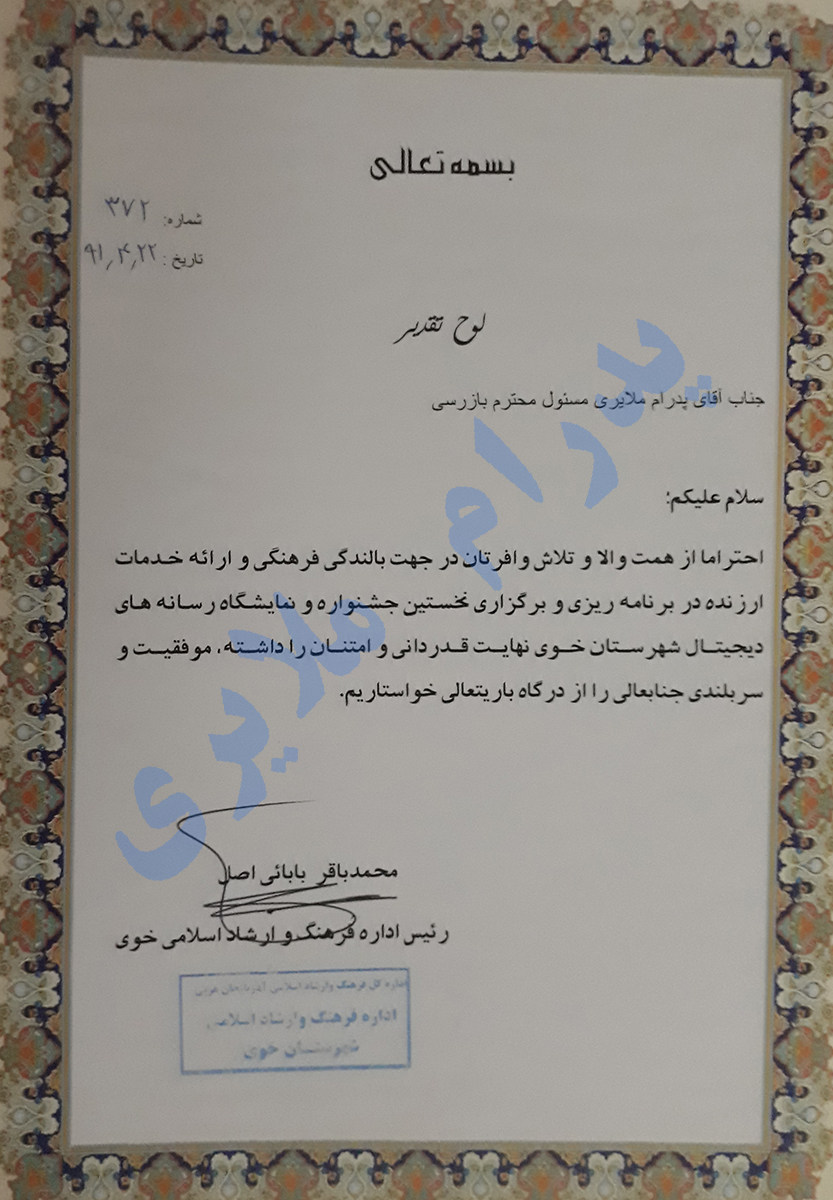 بسمه تعالی
شماره: ۳۷۲
تاریخ: ۹۱٫۴٫۲۲
لوح تقدیر
جناب آقای پدرام ملایری مسئول محترم بازرسی
سلام علیکم؛
احتراما از همت والا و تلاش وافرتان در جهت بالندگی فرهنگی و ارائه خدمات
ارزنده در برنامه ریزی و برگزاری نخستین جشنواره و نمایشگاه رسانه های
دیجیتال شهرستان خوی نهایت قدردانی و امتنان را داشته، موفقیت و
سربلندی جنابعالی را از درگاه باریتعالی خواستاریم.
پدرام ملایری
محمدباقر بابائی اصل
رئیس اداره فرهنگ و ارشاد اسلامی خوی
اداره کل فرهنگ وارشاد اسلامی آذربایجان غربی
اداره فرهنگ وارشاد اسلامی
شهرستان خوی